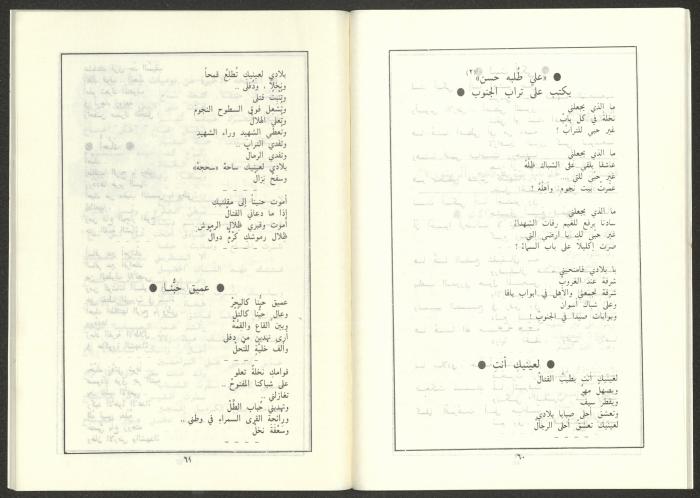 ● «علي طُلبه حسن»(٢)
يكتب على تراب الجنوب ●
ما الذي يجعلني
نخلة في كل باب
غير حبي للتراب !
ما الذي يجعلني
عاشقا يلقي على الشباك ظله
غير حبي للتي ....
عمرت بيت نجوم، وأهلة !
ما الذي يجعلني
سادنا يرفع للغيم رفات الشهداء
غير حبي لك يا ارضي التي
صرت إكليلا على باب السماء !
يا بلادي فامنحيني
شرفة عند الغروب
شرفة تجمعني والأهل في أبواب يافا
وعلى شباك أسوان
وبوابات صيدا في الجنوب !
● لعينيك أنت ●
لعينيك أنت يطيب القتال
ويصهل مهر
ويقطر سيف
وتعشق أحلى صبايا بلادي
لعينيك تعشق أحلى الرجال
- - - -
٦٠
بلادي لعينيك تطلع قمحا
ونخلا ، ودفلى ..
وتنبت قتلى
وتشعل فوق السطوح النجوم
وتعلي الهلال
وتعطي الشهيد وراء الشهيد
وتفدي التراب ..
وتفدي الرمال
بلادي لعينيك ساحة «سحجة»
وسفح نزال
- - - -
أموت حنينا إلى مقلتيك
إذا ما دعاني القتال
أموت وقبري ظلال الرموش
ظلال رموشك كرم دوال
- - - -
● عميق حبُّنا ●
عميق حبنا كالبحر
وعال حبنا كالتل
وبين القاع والقمة
أرى نهدين من دفلى
وألف خلية للنحل
- - - -
قوامك نخلة تعلو
على شباكنا المفتوح ..
تغازلني
وتهديني حباب الطل
ورائحة القرى السمراء في وطني ..
وسعفة نخل
- - - -
٦١